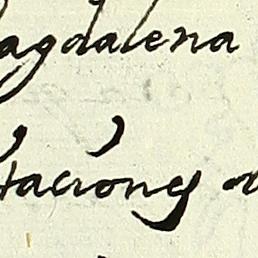 agdalena
taciones